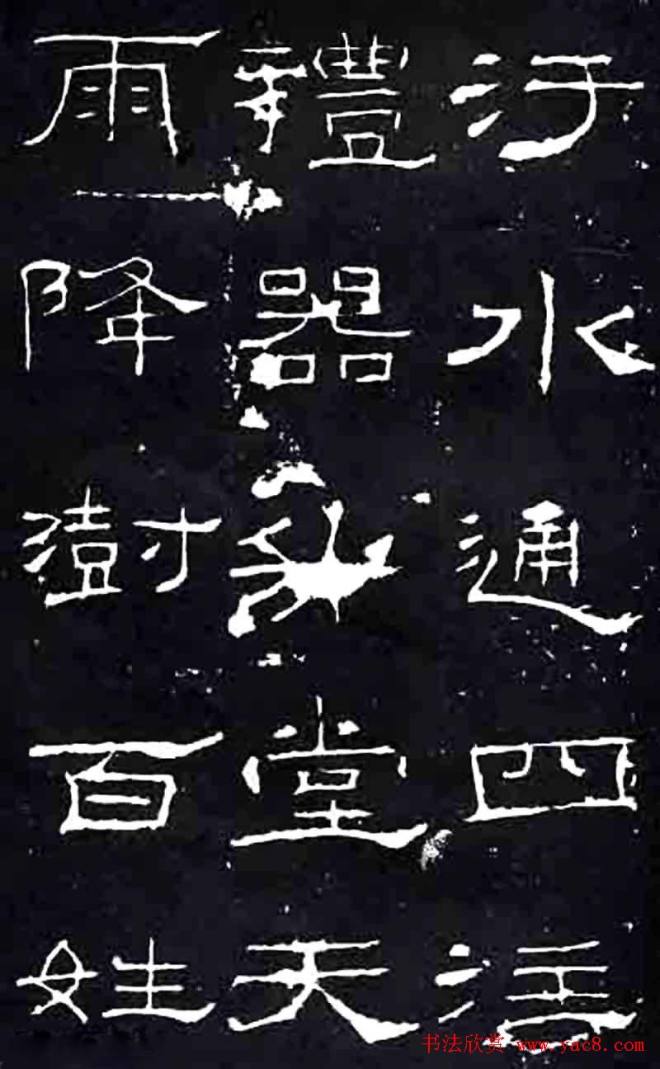 汙水通四注
禮器升堂天
雨降澍百姓
书法欣赏 www.yac8.com